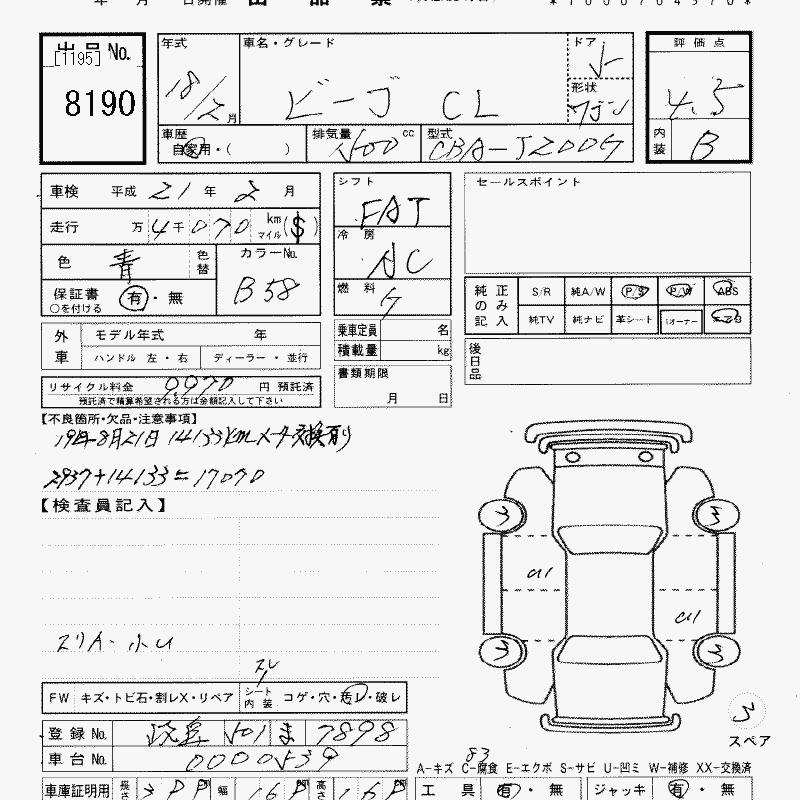 年 月 日開催 出 品 票
出品No.
[1195]
8190
年式
18/2月
車名・グレード
ビーゴ CL
ドア
5
形状
ワゴン
評価点
4.5
内装
B
車歴
自家用・( )
排気量 1500 cc
型式
CBA-J200G
車検 平成 21 年 2 月
走行 万 4 千 0 7 0 km
マイル ($)
色 青 色替
カラーNo.
B58
保証書 有・無
○を付ける
シフト
FAT
冷房
AC
燃料
G
乗車定員 名
積載量 kg
書類期限
月 日
セールスポイント
純正のみ記入
S/R 純A/W P/S P/W ABS
純TV 純ナビ 革シート 1オーナー エアB
後日品
外車
モデル年式 年
ハンドル 左・右 ディーラー・並行
リサイクル料金 9,970 円 預託済
預託済で精算希望される方は金額記入して下さい
【不良箇所・欠品・注意事項】
19年8月21日 14133km メーター交換有り
2937+14133=17070
【検査員記入】
スリA・小U
スレ
FW キズ・トビ石・割レX・リペア
シート内装 コゲ・穴・汚レ・破レ
登録No. 501 ま 7898
車台No. 0000539
車庫証明用 長さ 幅 高さ
3
3
3
3
A1
A1
3
スペア
83
A-キズ C-腐食 E-エクボ S-サビ U-凹ミ W-補修 XX-交換済
工具 有・無 ジャッキ 有・無